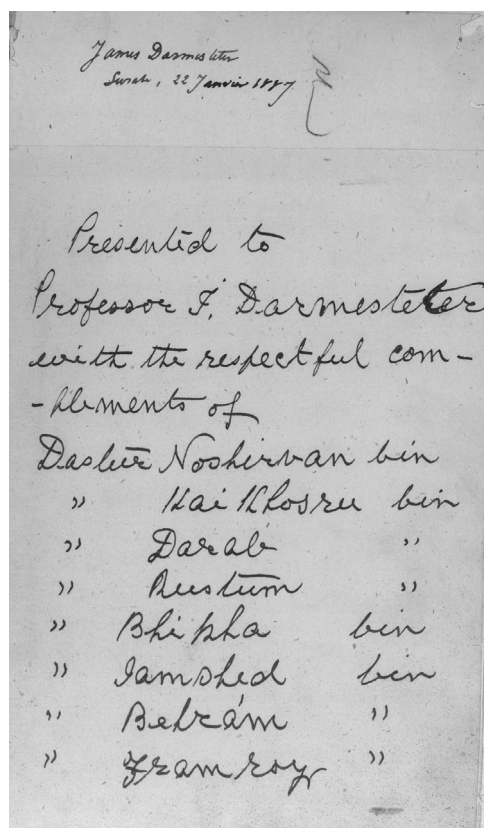 James Darmesteter
Surate, 22 Janvier 1887
Presented to
Professor J. Darmesteter
with the respectful com-
-plements of
Dastur Noshirvan bin
" Kai Khosru bin
" Darab "
" Rustum "
" Bhikha bin
" Jamshed bin
" Behrám "
" Framroy "